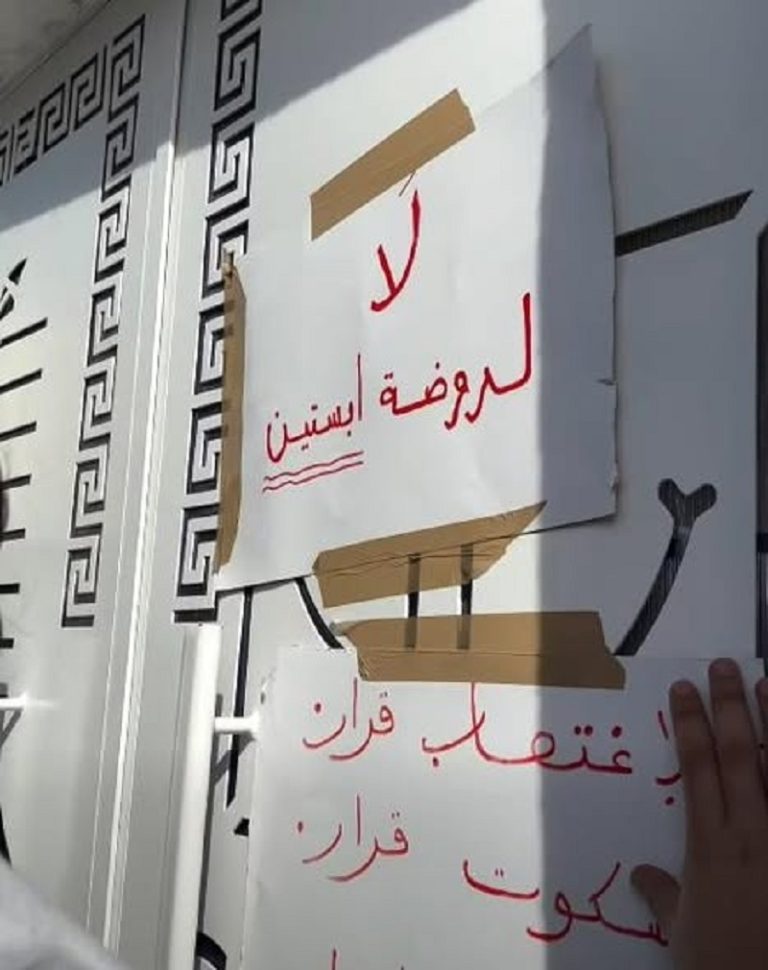 لا
لروضة ابستين
الاغتصاب قرار
السكوت قرار